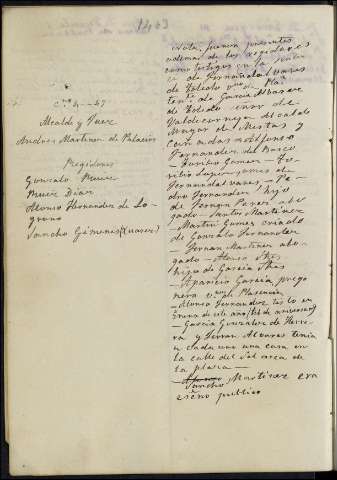 1453
C.ª 4 - 47
Alcalde y Juez
Andres Martinez de Palacios
Regidores
Gonzalo Perez
Perez Diaz
Alonso Hernandez de Lo-
groño
Sancho Gimenez (Suarez)
esta, fueron presentes
ademas de los regidores
como testigos en la
de Fernandalvares
de Toledo
de Garcia Alvarez
de Toledo señor de
Valdecorneja
Mayor de Mestas y
cañadas Alfonso
Fernandez del Barco
- Toribio Gomez - To-
ribio Lopez
Fernandalvares, Pe-
dro Fernandez hijo
de Fernan Perez abo
gado - Santos Martinez
- Martin Gomez criado
de Gonzalo Fernandez
- Fernan Martinez abo-
gado - Alonso
hijo de Garcia
- Aparicio Garcia, prego
nero v.º de Plasencia
- Alonso Fernandez
Enero de este año
- Garcia Gonzalez de Herre-
ra y Ferran Alvarez tenia
n cada uno una casa en
la calle del Sol cerca de
la plaza -
- Sancho Martinez era
escno publico